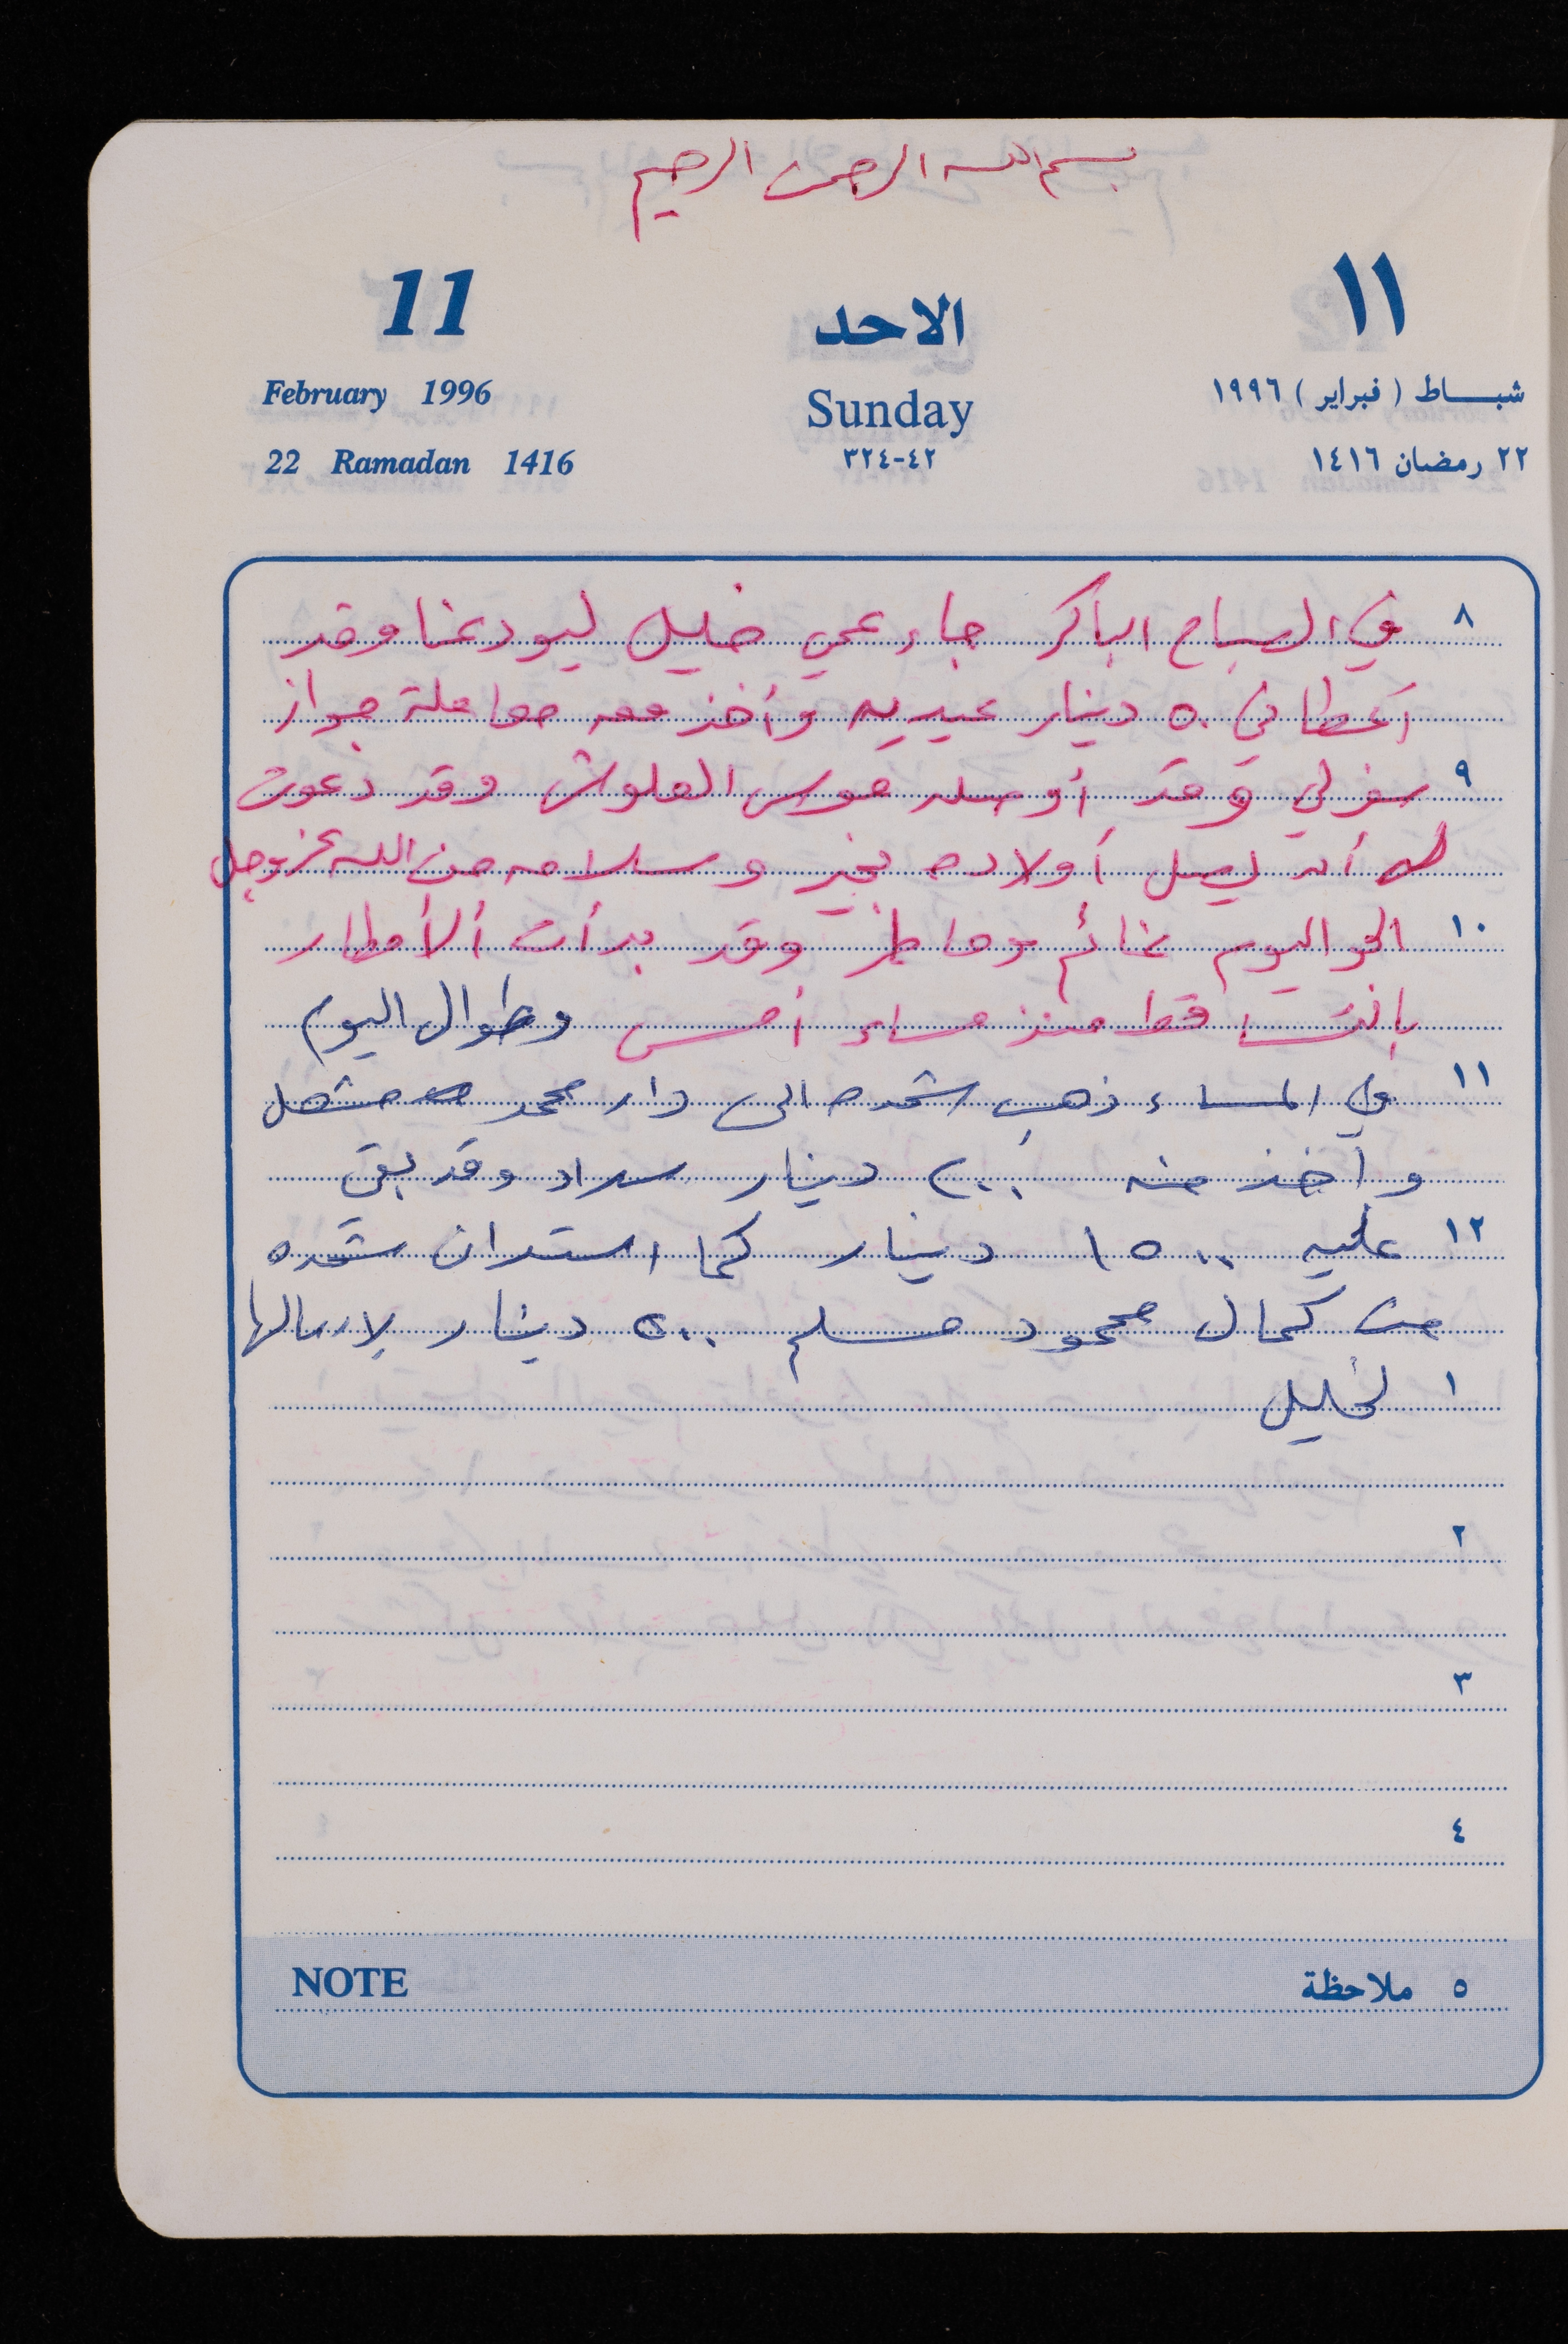 بسم الله الرحمن الرحيم
11 الاحد ١١
February 1996 Sunday شبـــاط ( فبراير ) ١٩٩٦
22 Ramadan 1416 ٤٢-٣٢٤ ٢٢ رمضان ١٤١٦
٨ في الصباح الباكر جاء عمي خليل ليودعنا وقد
أعطاني ٥٠ دينار عيديه وأخذ معه معاملة جواز
٩ سفر لي وقد أوصله موسى العلوش وقد دعوت
له أن يصل أولاده بخير وسلامه من الله عز وجل
١٠ الجو اليوم غائم وماطر وقد بدأت ألأمطار
بالتساقط منذ مساء أمس وطوال اليوم
١١ في المساء ذهب شحده الى دار محمد مشعل
وأخذ منه ٢٠٠ دينار سداد وقد بقي
١٢ عليه ١٥٠٠ دينار كما استدان شحده
من كمال محمود مسلم ٥٠٠ دينار لارسالها
١ لخليل
٢
٣
٤
NOTE ٥ ملاحظة